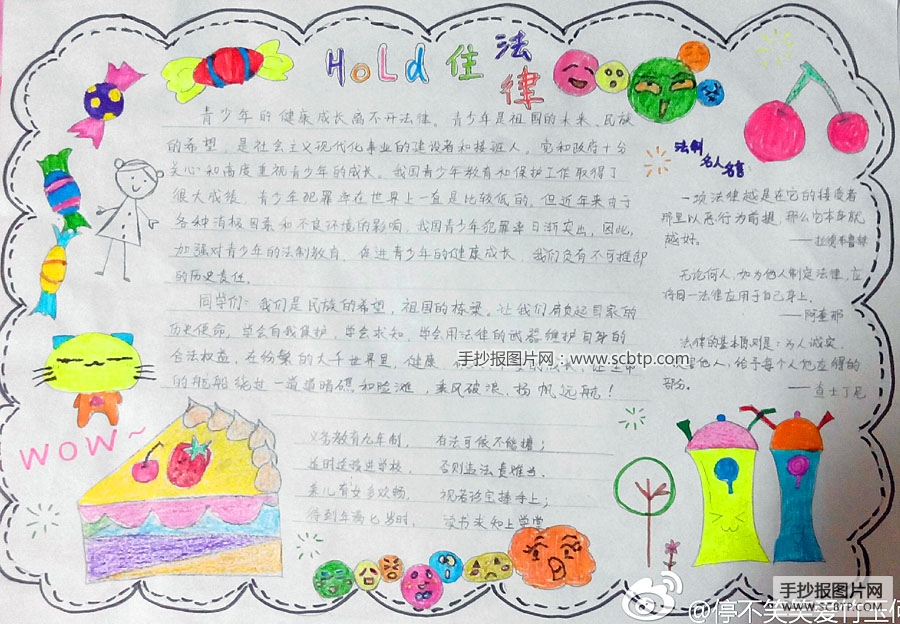 Hold 住 法
律
青少年的健康成长离不开法律。青少年是祖国的未来、民族
的希望,是社会主义现代化事业的建设者和接班人。党和政府十分
关心和高度重视青少年的成长。我国青少年教育和保护工作取得了
很大成绩,青少年犯罪率在世界上一直是比较低的。但近年来由于
各种消极因素和不良环境的影响,我国青少年犯罪率日渐突出,因此,
加强对青少年的法制教育,促进青少年的健康成长,我们负有不可推卸
的历史责任。
同学们:我们是民族的希望,祖国的栋梁。让我们肩负起国家的
历史使命,学会自我保护,学会求知,学会用法律的武器维护自身的
合法权益,在纷繁的大千世界里,健康
的船舶绕过一道道暗礁和险滩,乘风破浪,扬帆远航!
义务教育九年制, 有法可依不能糟;
适时送孩进学校, 否则违法责难当。
养儿有女多欢畅, 视若珍宝捧手上;
待到年满七岁时, 读书求知上学堂
法制
名人名言
一项法律越是在它的接受者
那里以恶行为前提,那么它本身就
越好。
无论何人,如为他人制定法律,应
将同一法律应用于自己身上。
——阿奎那
法律的基本原则是:为人诚实,
他人,给予每个人他应得的
部分。
——查士丁尼
wow~
手抄报图片网:www.scbtp.com
手抄报图片网
WWW.SCBTP.COM
@停不笑笑爱竹玉何